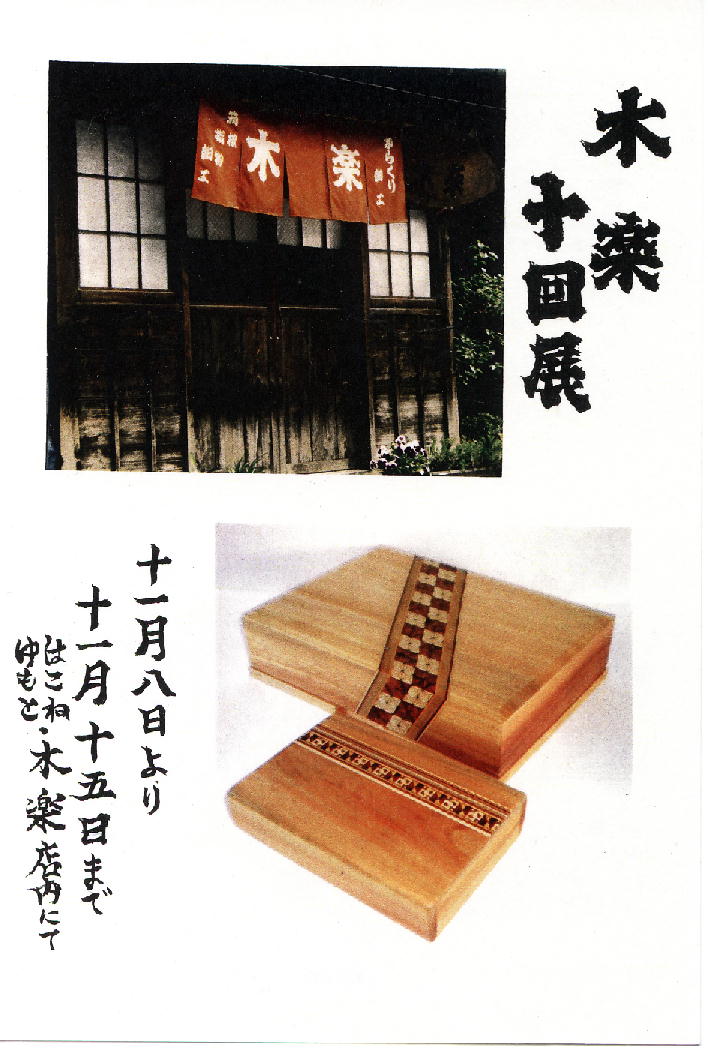 木楽
十回展
からくり
細工
木楽
箱根
指物
細工
十一月八日より
十一月十五日まで
はこね
ゆもと・木楽店内にて